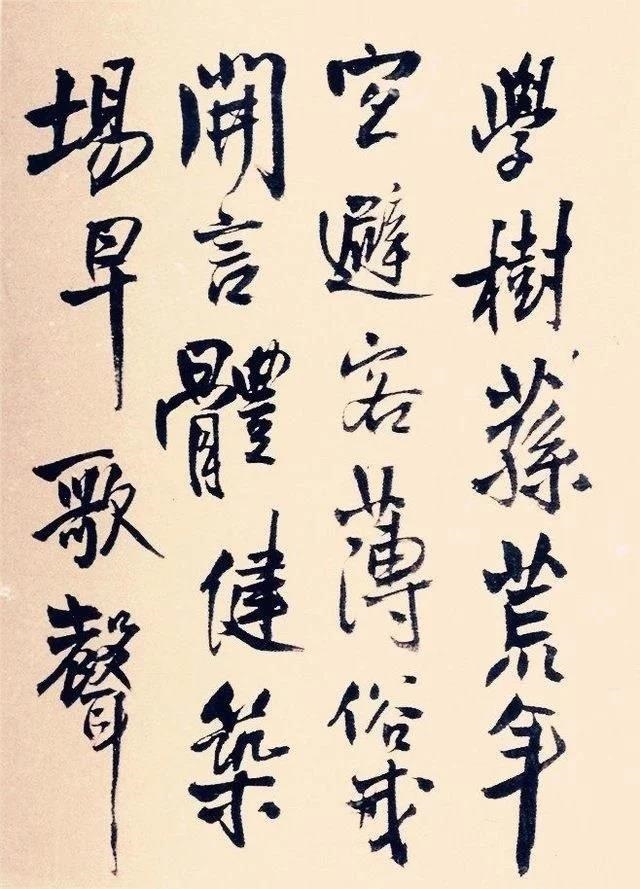 學樹蓀荒年
空避客薄俗戒
開言體健築
場早歌聲